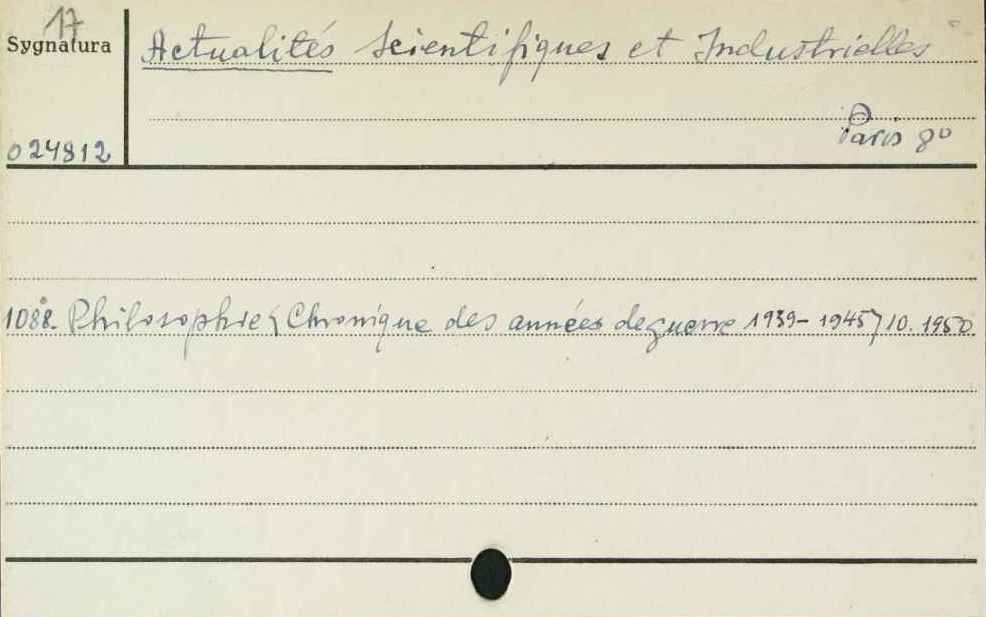 17
Sygnatura
Actualités Scientifiques et Industrielles
Paris 8º
024812
1088. Philosophie (Chronique des années de guerre 1939-1945) 10. 1950